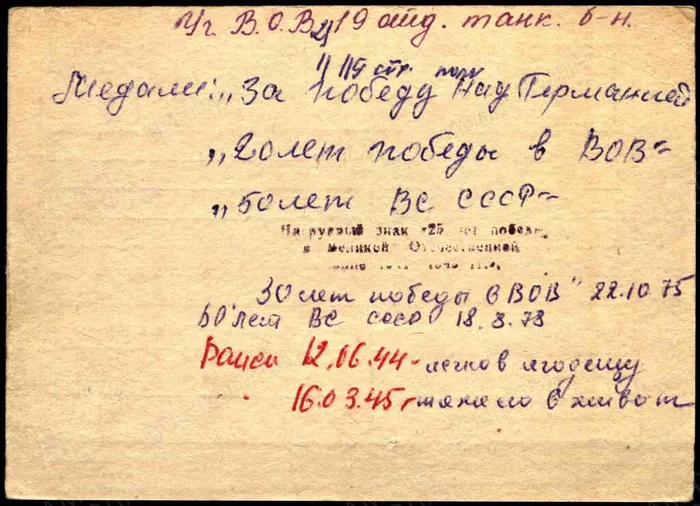 Уч. В.О.В. 219 отд. танк. б-н.
119 стр. полк
Медали: „За победу над Германией
„20 лет победы в ВОВ"
„50 лет ВС СССР"
Нагрудный знак «25 лет победы
в Великой Отечественной
30 лет победы в ВОВ" 22.10.75
60 лет ВС СССР 18.8.78
Ранен 12.06.44 - легко в ягодицу
16.03.45 - тяжело в живот